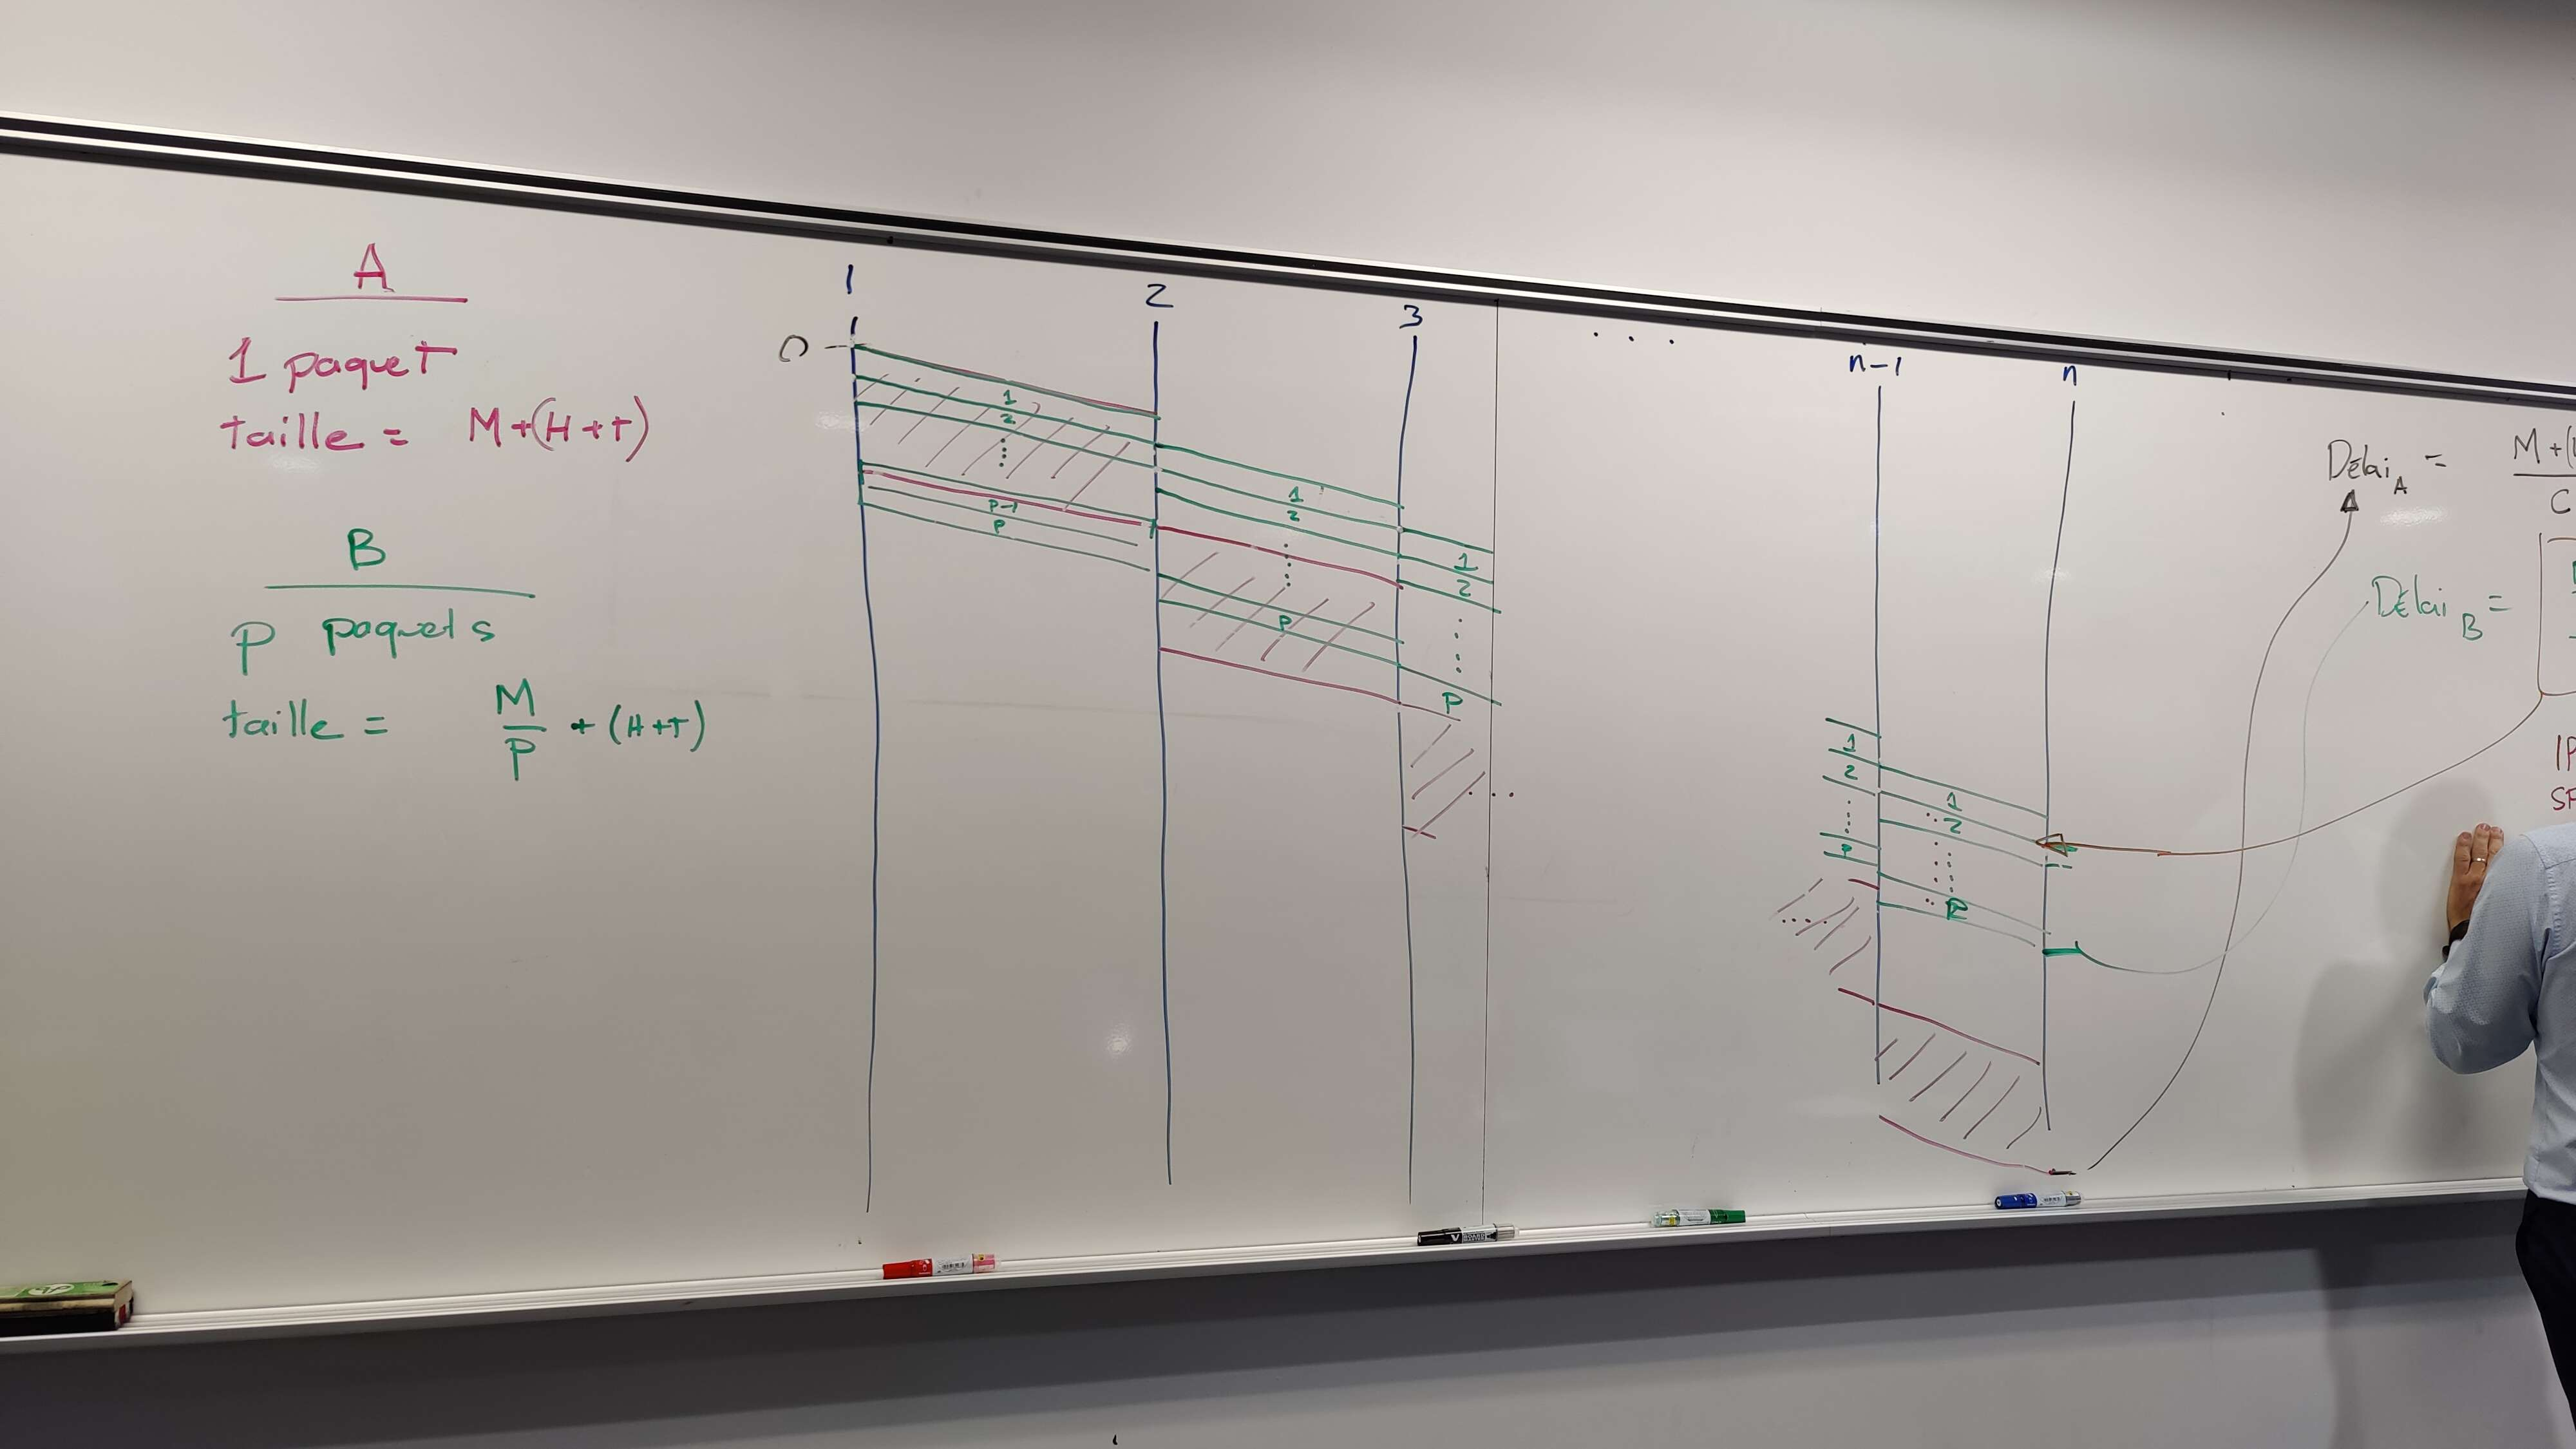 A
1 paquet
taille = M+(H+T)
B
P paquets
taille = M/P + (H+T)
1 2 3 . . . n-1 n
0
1
2
P-1
P
1
2
P
1
2
P
1
2
P
1
2
P
Délai A = M+( / C
Délai B =
IP